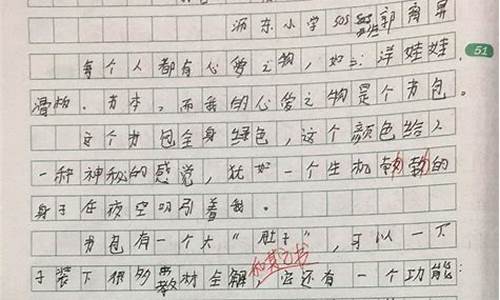 沥东小学505班郭育昇
51
每个人都有心爱之物，如：洋娃娃、
滑板、书本，而我的心爱之物是个书包。
这个书包全身绿色，这个颜色给人
一种神秘的感觉，犹如一个生机勃勃的
身于在夜空吸引着我。
书包有一个大“肚子”，可以一下
子装下很多教材全解和其它书它还有一个功能